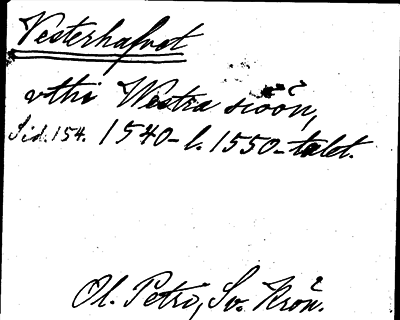 Vesterhafvet
vthi Westra siöön,
Sid. 154. 1540- l. 1550-talet.
Ol. Petri, Sv. Krön.